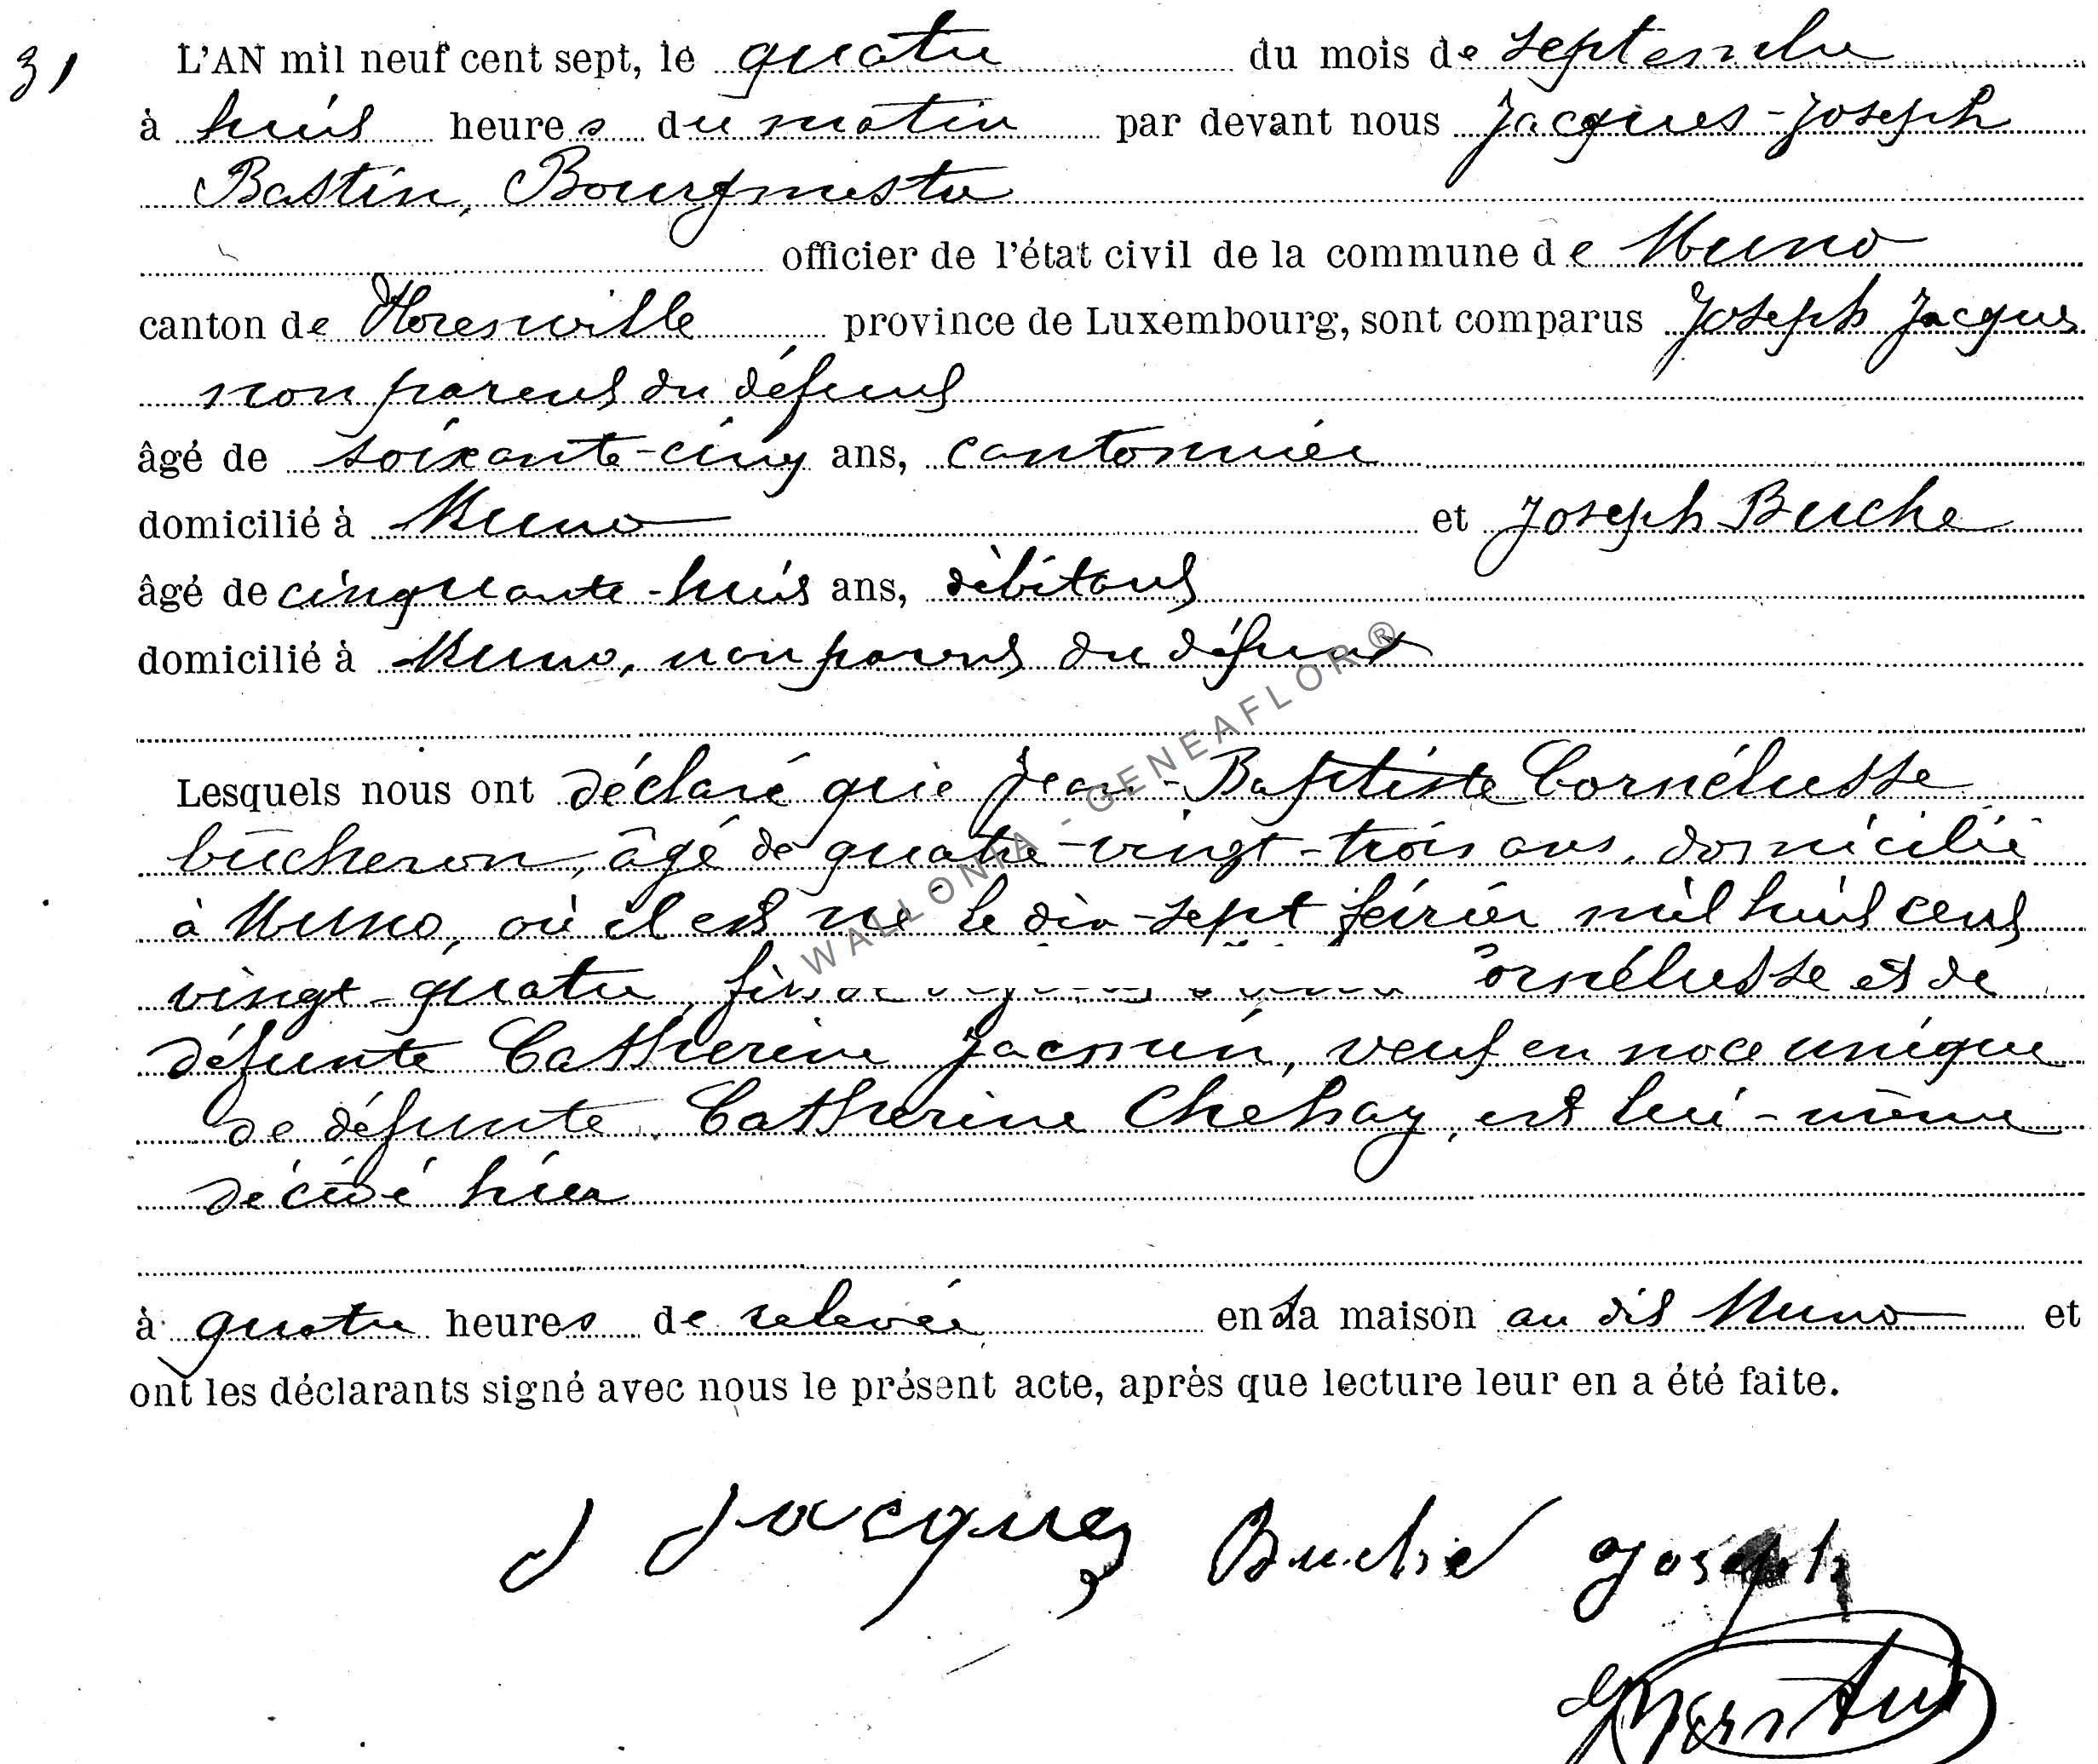 31 L'AN mil neuf cent sept, le quatre du mois de septembre
à huit heures du matin par devant nous Jacques-Joseph
Bastin, Bourgmestre
officier de l'état civil de la commune de Muno
canton de Florenville province de Luxembourg, sont comparus Joseph Jacques
non parent du défunt
âgé de soixante-cinq ans, cantonnier
domicilié à Muno et Joseph Buche
âgé de cinquante-huit ans, débitant
domicilié à Muno, non parent du défunt
Lesquels nous ont déclaré que Jean-Baptiste Cornélusse
bûcheron, âgé de quatre-vingt-trois ans, domicilié
à Muno, où il est né le dix-sept février mil huit cent
vingt-quatre, fils de Cornélusse et de
défunte Catherine Jacmin, veuf en noce unique
de défunte Catherine Chehay, est lui-même
décédé hier
à quatre heures de relevée en sa maison au dit Muno et
ont les déclarants signé avec nous le présent acte, après que lecture leur en a été faite.
J Jacques Buche Joseph
JJBastin
WALLONIA - GENEAFLOR®